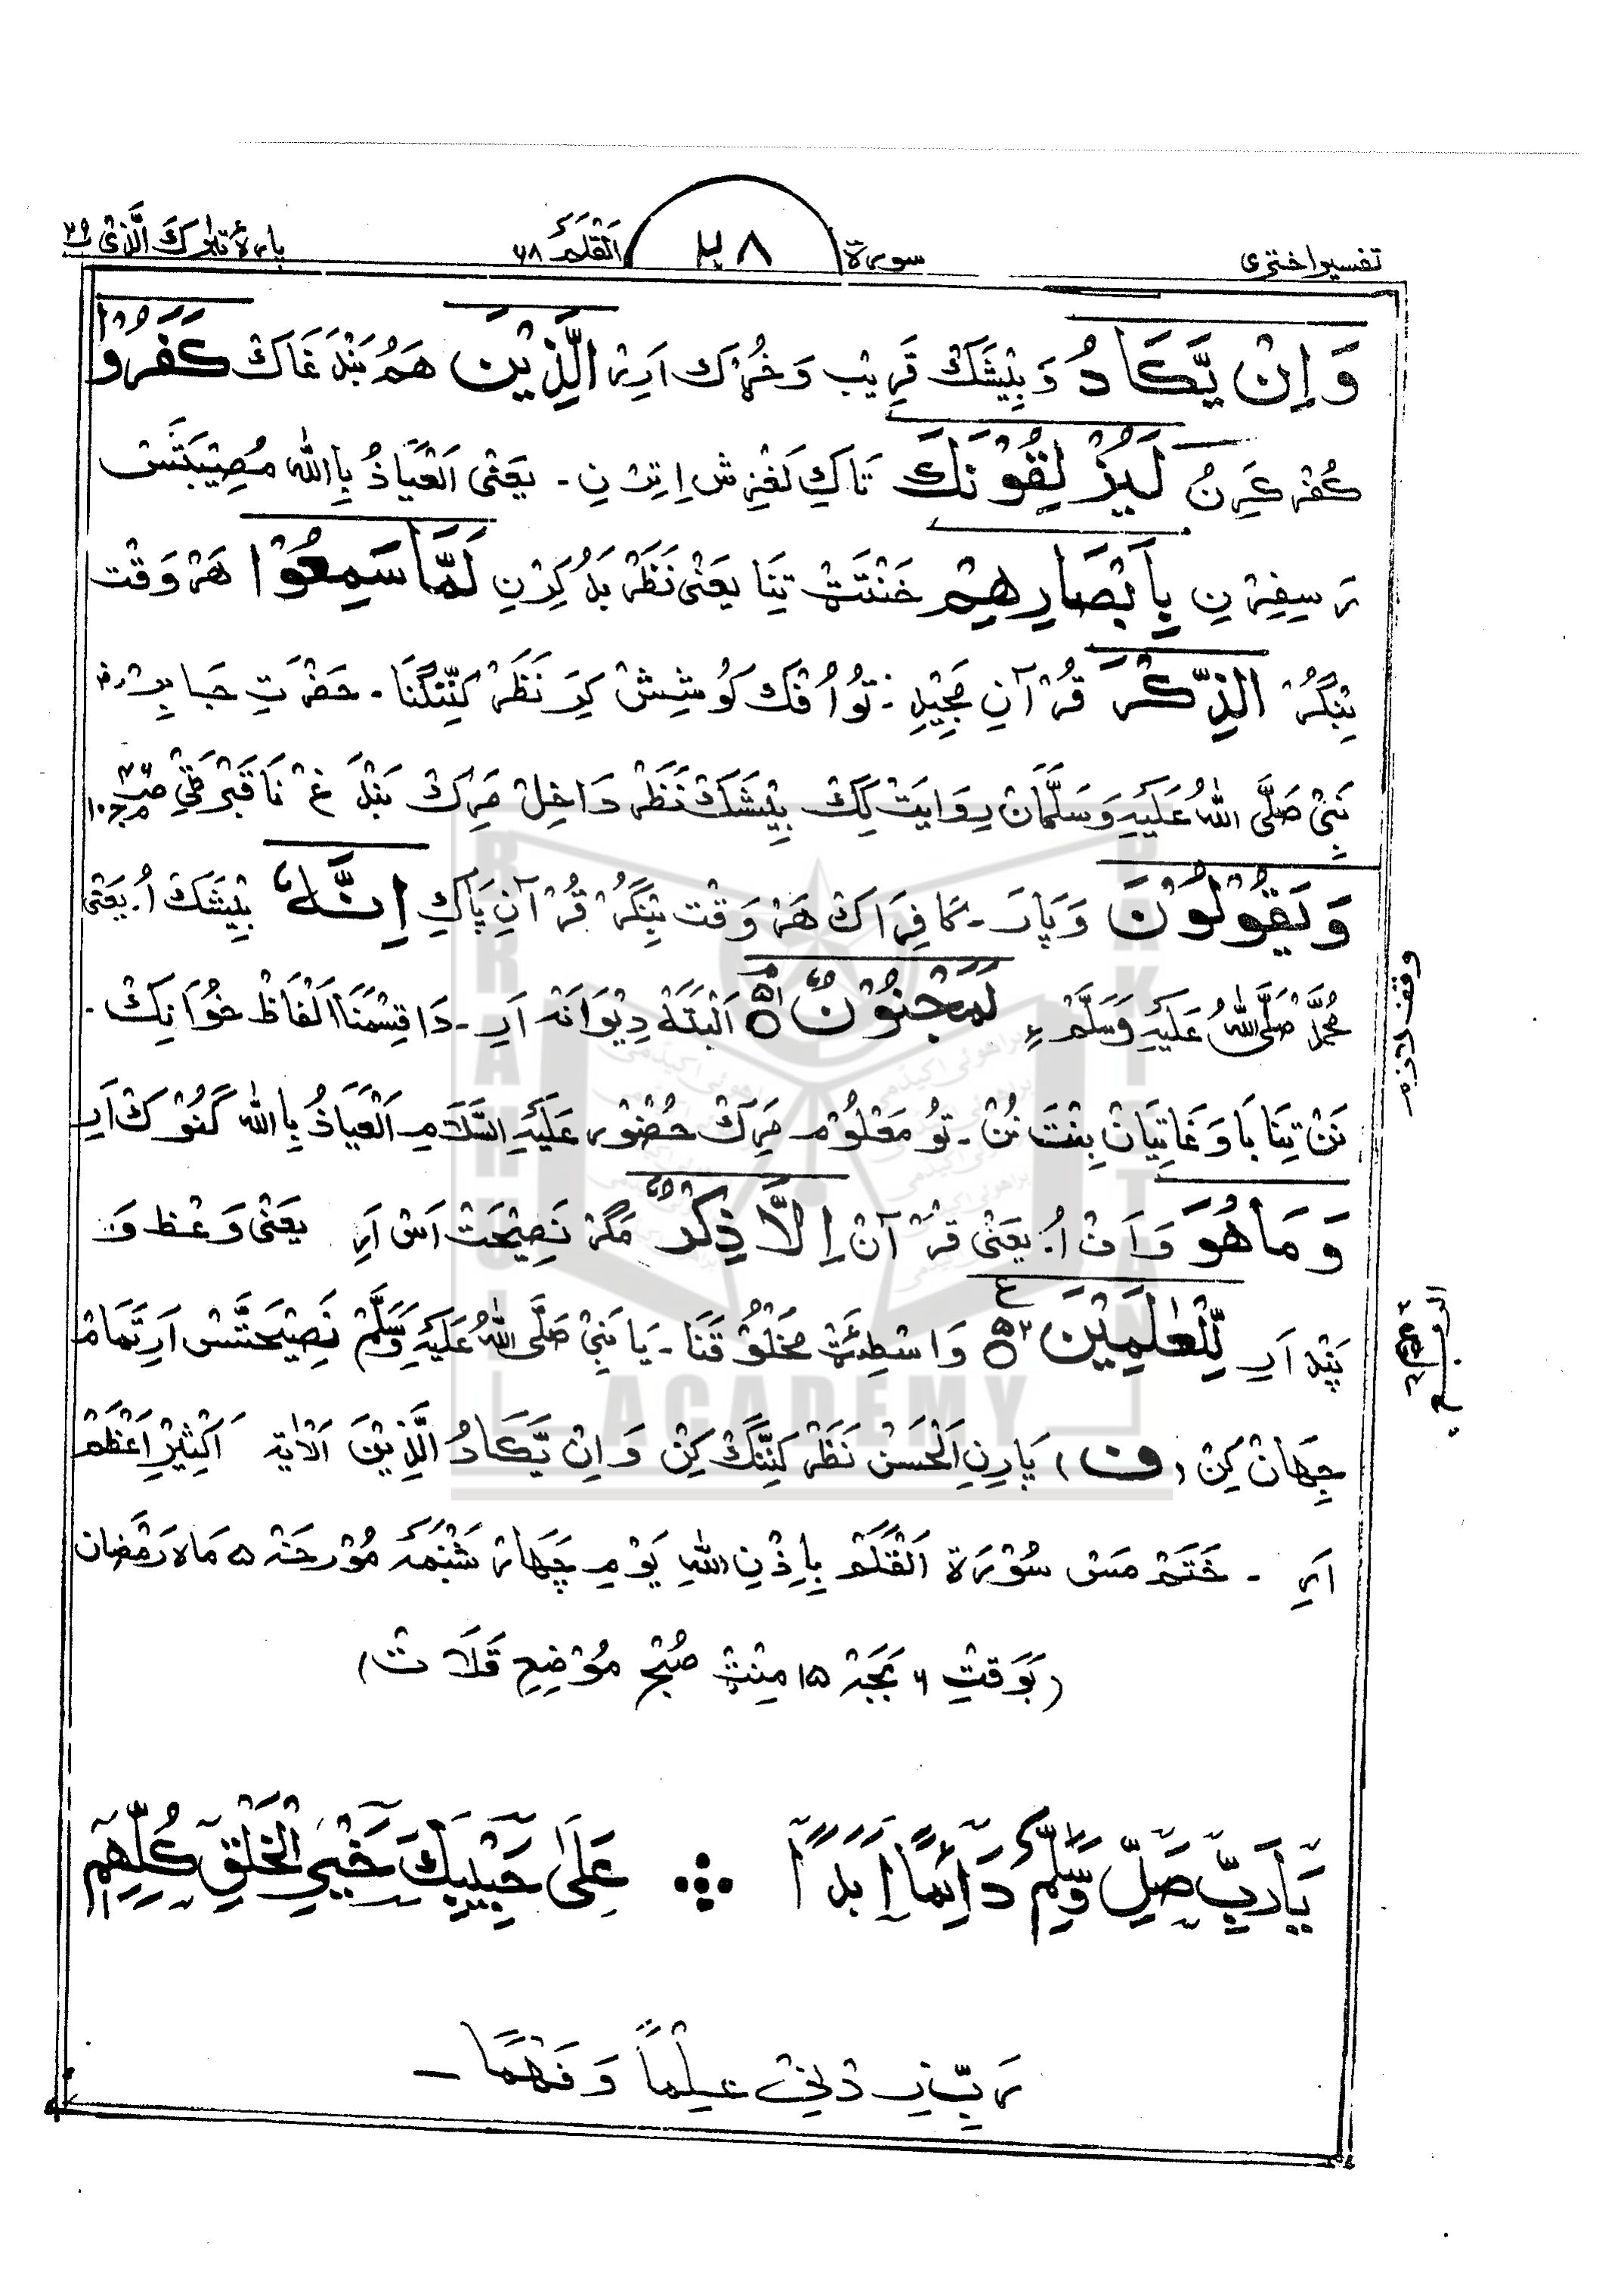 تفسیر اختری
سورۃ
۴۸
اَلْقَلَم ۶۸
پارۂ تبٰرک الَّذِیْ ۲۹
وَ اِنْ یَّكَادُ وَ بِیْشَکْ قَرِیْب وَ خُڑْک اَرِرْ الَّذِیْنَ هَمُ بَنْدَ غَاکْ كَفَرُوْا
کُفْر کَرِرْ لَیُزْلِقُوْنَكَ تَاکِ لَغْزِش اِتِرْ نِ ۔ یَعْنٰی اَلْعَیَاذُ بِاللّٰه مُصِیْبَتَّسْ
رَسِفِرْ نِ بِاَبْصَارِهِمْ خَنْتَتْ تِنَا یَعْنٰی نَظَرْ بَدْ کِرْنِ لَمَّا سَمِعُوْا هَرْ وَقْت
بِنْگُرْ الذِّكْرَ قُرْآنِ مَجِیْدِ ۔ تَوْ اُفْک کُوْشِشْ کِرَ نَظَرْ کَنِّنْگْنَا ۔ حَضْرَتِ جَابِرْ
نَبِیْ صَلَّی اللّٰهُ عَلَیْهِ وَسَلَّمَانْ رِوَایَتْ کِکْ بِیْشَکْ نَظَرْ دَاخِلْ مَرِکْ بَنْدَ غْ نَا قَبْر ٹِیْ
وَ یَقُوْلُوْنَ وَ پَارَ ۔ کَافِرَاکْ هَرْ وَقْت بِنْگُرْ قُرْآنِ پَاکِ اِنَّهٗ بِیْشَکْ اُ ۔ یَعْنٰی
مُحَمَّدْ صَلَّی اللّٰهُ عَلَیْهِ وَسَلَّمْ لَمَجْنُوْنٌ ۵۱ اَلْبَتَّهْ دِیْوَانَه اَرِ ۔ دَا قِسْمْنَا اَلْفَاظْ خُوَانِکْ ۔
نَنْ تِنَا بَاوَغَاتِیَانْ بِنْتَ نُنْ ۔ تَوْ مَعْلُوْم مَرِکْ حُضُوْر عَلَیْهِ السَّلَامِ اَلْعَیَاذُ بِاللّٰه گَنُوْک اَرِ
وَ مَا هُوَ وَ اَفْ اُ ۔ یَعْنٰی قُرْآنْ اِلَّا ذِكْرٌ مَگَرْ نَصِیْحَتْ اَسْ اَرِ یَعْنٰی وَعْظ وَ
پَنْد اَرِ لِّلْعٰلَمِیْنَ ۵۲ ع وَاسْطِئَتْ مَخْلُوْقْنَا ۔ یَا نَبِیْ صَلَّی اللّٰهُ عَلَیْهِ وَسَلَّمْ نَصِیْحَتَّسْ اَرِ تَمَامْ
جِهَانْ کِنْ (ف) پَارِنِ اَلْحَسَنْ نَظَرْ کَنِّنْگْ کِنْ وَ اِنْ یَّکَادُ الَّذِیْنَ اَلْاٰیَه اَکْثِیْرِ اَعْظَمْ
اَرِ ۔ خَتَمْ مَسْ سُوْرَۃ اَلْقَلَمْ بِاِذْنِ اللّٰهِ یَوْمِ چَهَارْ شَنْبَهْ مُوْرخَه ۵ مَاه رَمَضان
(بَوَقْتِ ۶ بَجَه ۱۵ مِنْٹ صُبْح مَوْضِعِ قَلَاتْ)
یَا رَبِّ صَلِّ وَسَلِّمْ دَائِمًا اَبَدًا ∴ عَلٰی حَبِیْبِكَ خَیْرِ الْخَلْقِ كُلِّهِم
رَبِّ زِدْنِیْ عِلْمًا وَّ فَهْمًا ۔
وقف لازم
BRAHUI ACADEMY PAKISTAN